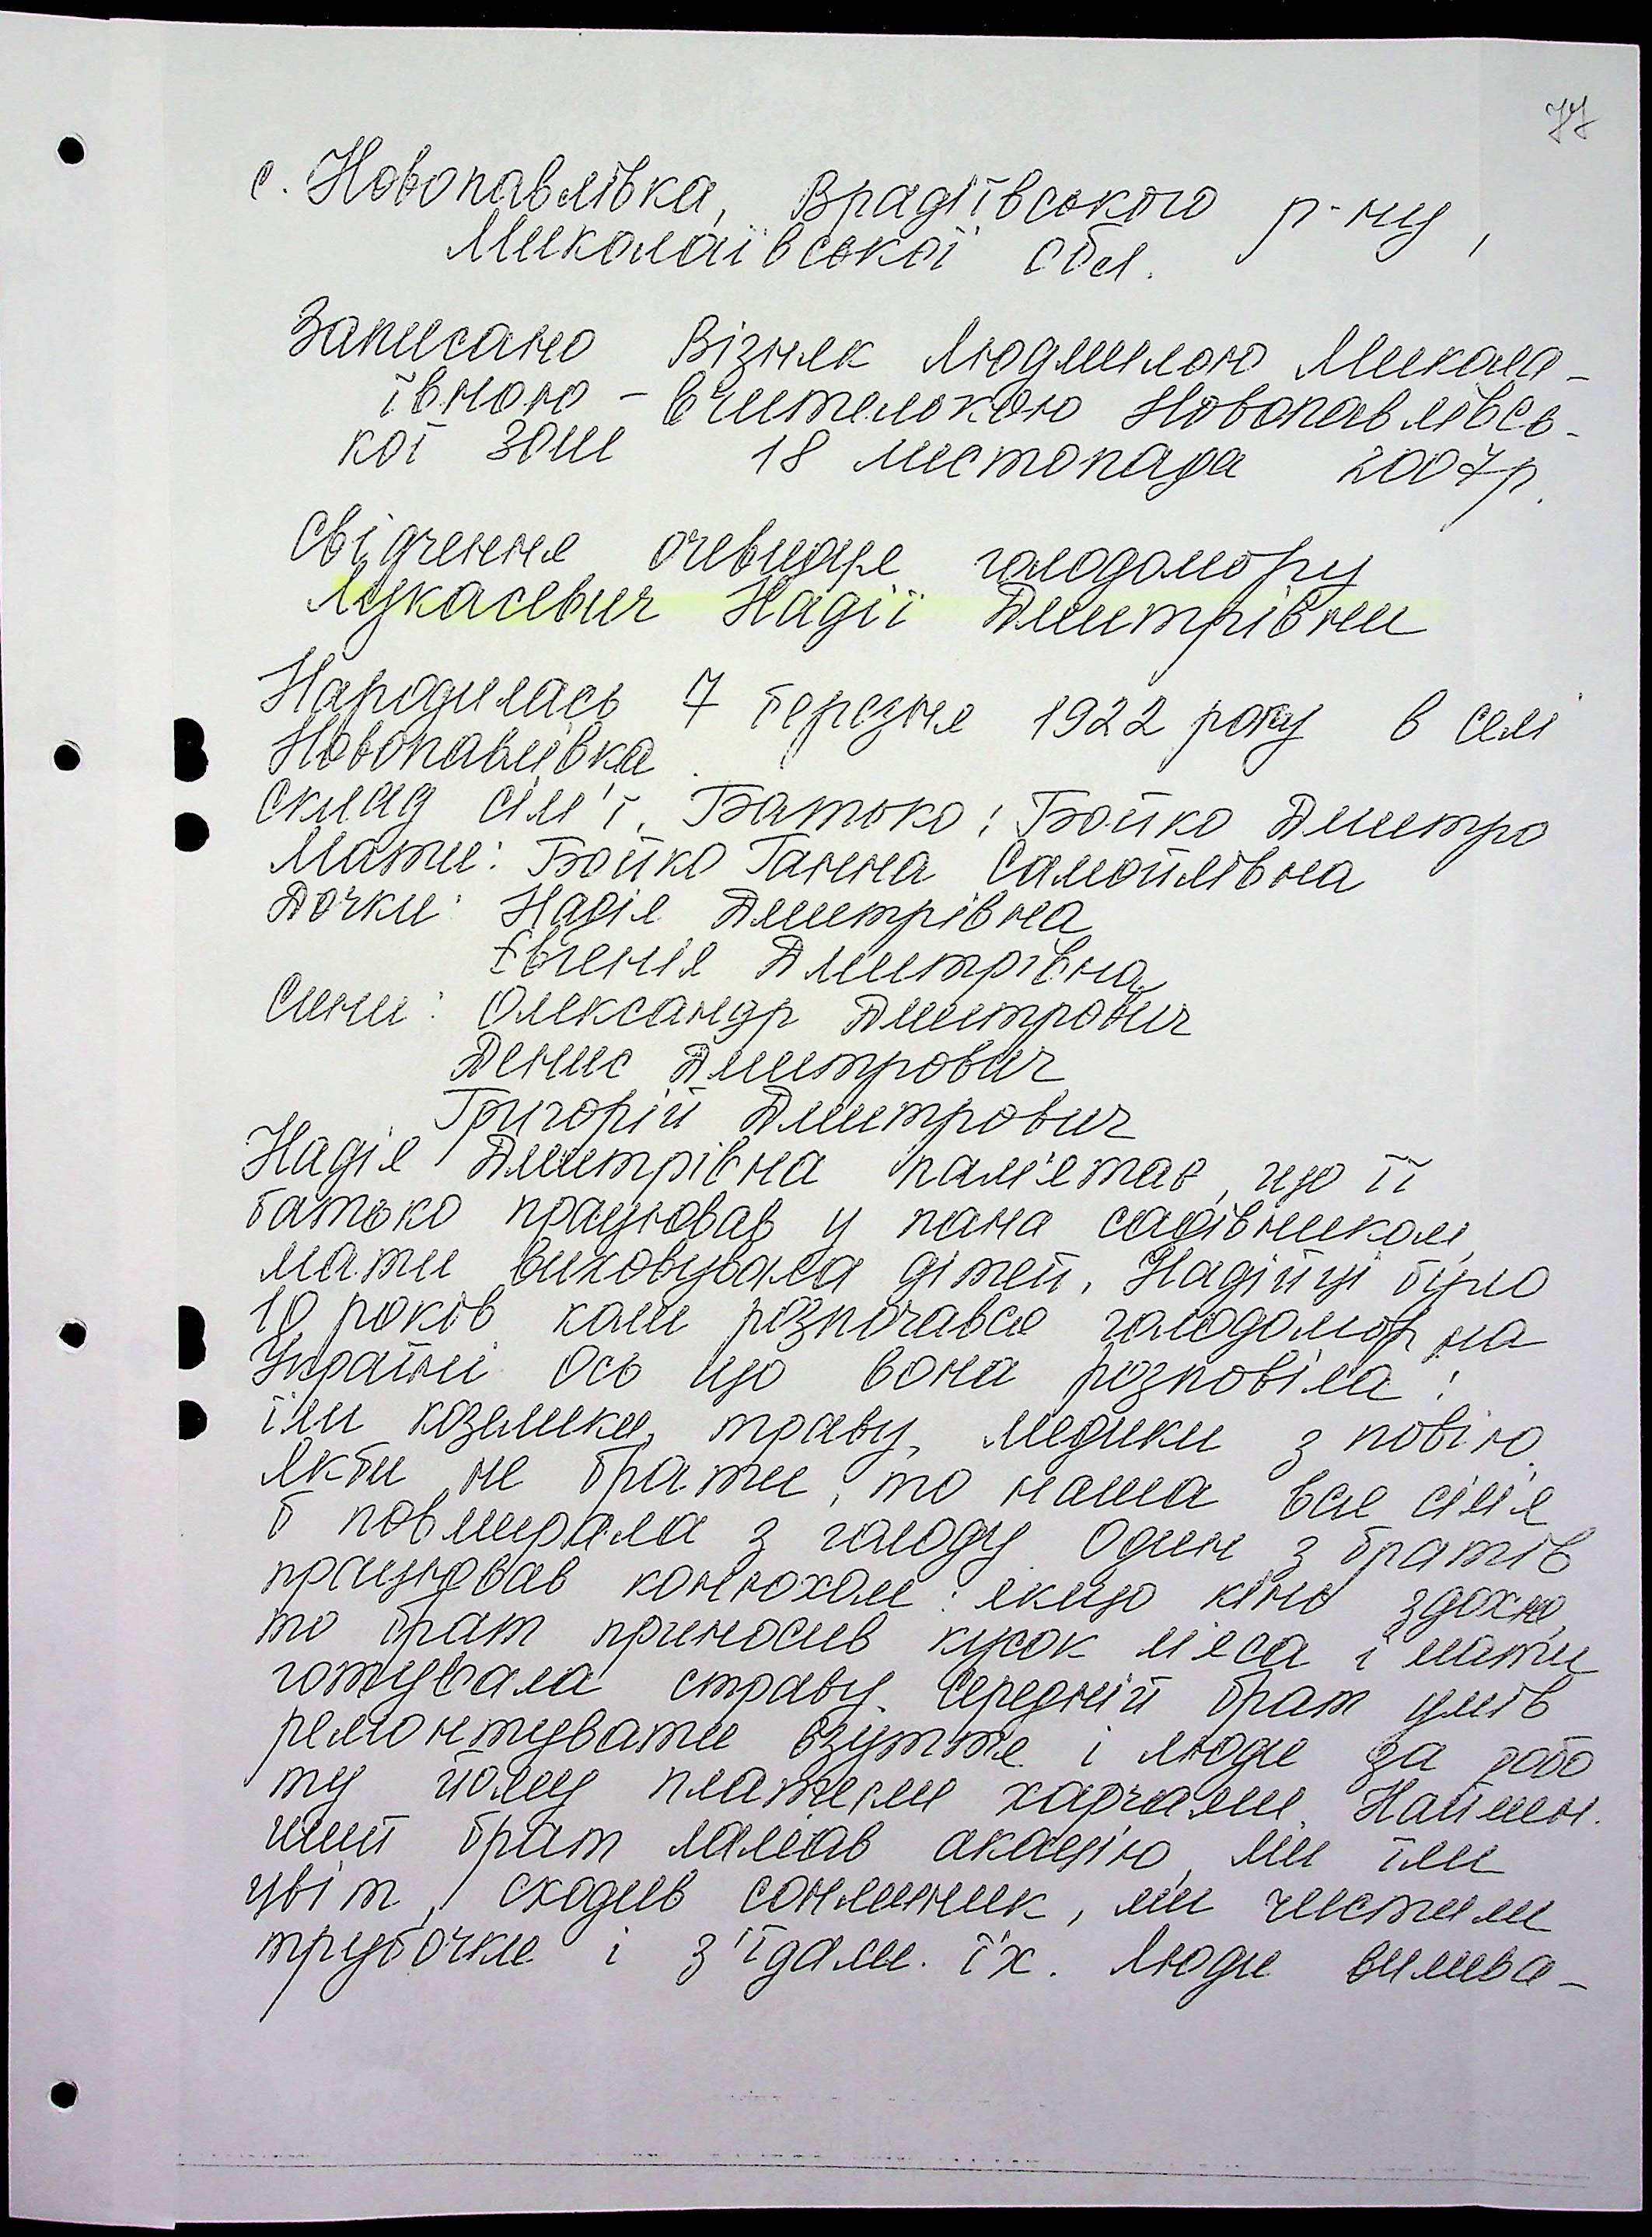 77
с. Новопавлівка, Врадіївського р-ну,
Миколаївської обл.
Записано Візняк Людмилою Микола-
ївною - вчителькою Новопавлівсь-
кої ЗОШ 18 листопада 2007р.
Свідчення очевидця голодомору
Лукасевич Надії Дмитрівни
Народилась 7 березня 1922 року в селі
Новопавлівка.
Склад сім'ї. Батько: Бойко Дмитро
Мати: Бойко Ганна Самойлівна
Дочки: Надія Дмитрівна
Євгенія Дмитрівна
Сини: Олександр Дмитрович
Денис Дмитрович
Григорій Дмитрович
Надія Дмитрівна пам'ятає, що її
батько працював у пана садівником,
мати виховувала дітей. Надійці було
10 років, коли розпочався голодомор на
Україні. Ось що вона розповіла:
їли козелики, траву, медики з повію.
Якби не брати, то наша вся сім'я
б повмирала з голоду. Один з братів
працював конюхом: якщо кінь здохне,
то брат приносив кусок м'яса і мати
готувала страву. Середній брат умів
ремонтувати взуття і люди за робо
ту йому платили харчами. Наймен.
ший брат ламав акацію, ми їли
цвіт, сходив сонлиник, ми чистили
трубочки і з'їдали. їх. Люди вилива-